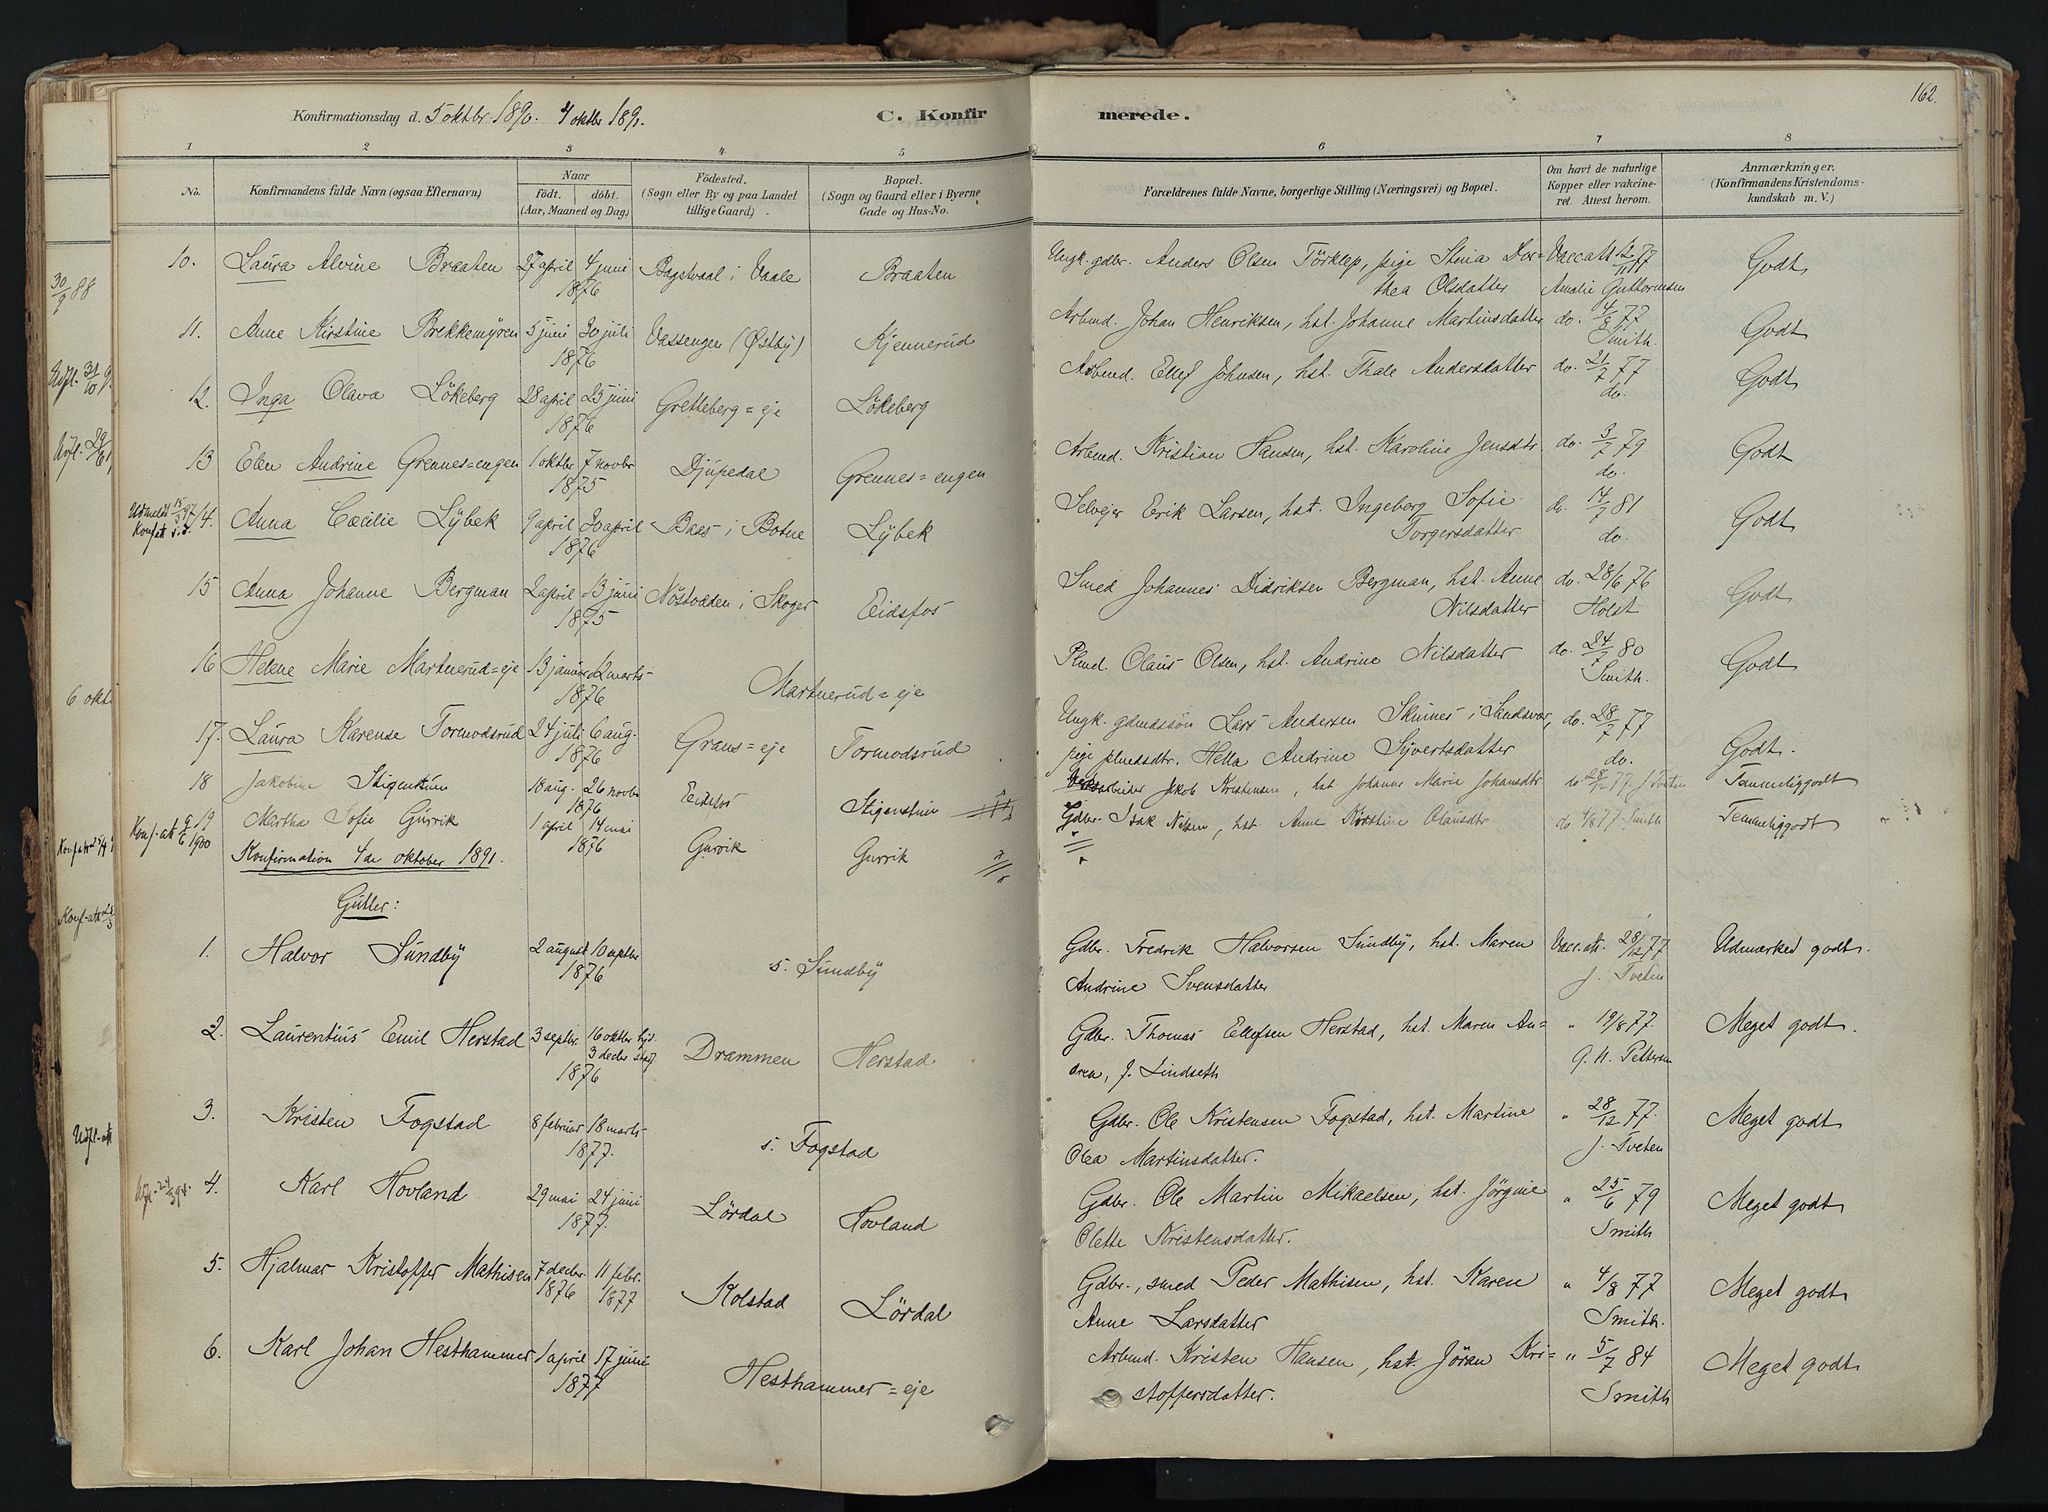 162.
Konfirmationsdag d. 5 oktbr. 1890. 4 oktbr 1891.
C. Konfirmerede.
1 2 3 4 5 6 7 8
No. Konfirmandens fulde Navn (ogsaa Efternavn) Naar Født. døbt. (Aar, Maaned og Dag.) Fødested. (Sogn eller By og paa Landet tillige Gaard) Bopæl. (Sogn og Gaard eller i Byerne Gade og Hus-No. Forældrenes fulde Navne, borgerlige Stilling (Næringsvei) og Bopæl. Om havt de naturlige Kopper eller vakcineret. Attest herom. Anmærkninger. (Konfirmandens Kristendomskundskab m. V.)
10. Laura Alvine Braaten 27 april 4 juni 1876 Bagstvaal i Vaale Braaten Ungk. gdbr. Anders Olsen Törklep, pige Stina Dorthea Olsdatter Vaccatt. 12/11 77 Amalie Guttormsen Godt
11. Anne Kirstine Brekkemÿren 5 juni 30 juli 1876 Vassengen (Østbÿ) Kjennerud Arbmd. Johan Henriksen, hst. Johanne Martinsdatter do. 4/8 77 Smith. Godt
12. Inga Olava Lökeberg 28 april 25 juni 1876 Gretteberg=eje Lökeberg Arbmd. Ellef Johnsen, hst. Thale Andersdatter do. 21/7 77 do. Godt
13 Elen Andrine Grennes=engen 1 oktbr 7 novbr 1875 Djupedal Grennes=engen Arbmd. Kristian Hansen, hst. Karoline Jensdtr. do. 3/7 79 do. Godt
Udmeldt 15/3 97 Konf.att. s.d. 14. Anna Cæcilie Lÿbek 9 april 30 april 1876 Baas i Botne Lÿbek Selvejer Erik Larsen, hst. Ingeborg Sofie Torgersdatter do. 14/7 81 do. Godt
15 Anna Johanne Bergman 2 april 13 juni 1875 Nöstvedden i Skoger Eidsfos Smed Johannes Didriksen Bergman, hst. Anne Nilsdatter do. 28/6 76 Holst Godt
16 Helene Marie Martnerud=eje 13 januar 12 marts 1876 Martnerud=eje Plmd. Olaus Olsen, hst. Andrine Nilsdatter do. 24/7 80 Smith. Godt
17. Laura Karense Tormodsrud 24 juli 6 aug. 1876 Grans=eje Tormodsrud Ungk. gdmdssön Lars Andersen Skinnes i Sandsvær, pige plmdsdtr. Hella Andrine Sÿvertsdatter do. 28/7 77 do. Godt.
18 Jakobine Stigenstuen 18 aug. 26 novbr 1876 Eidsfos Stigenstuen Jakob Kristensen, hst. Johanne Marie Johansdtr do 28/12 77. J. Tveten Temmeliggodt
Konf.att 9/6 1900 19 Martha Sofie Gurvik 1 april 14 mai 1876 Gurvik Gurvik Gdbr. Isak Nilsen, hst. Anne Kirstine Olausdtr do 4/8 77 Smith Temmeliggodt
Konfirmation 4de oktober 1891.
Gütter:
1. Halvor Sundbÿ 2 august 10 septbr 1876 s. Sundbÿ Gdbr. Fredrik Halvorsen Sundbÿ, hst. Maren Andrine Svensdatter Vacc.att. 28/12 77 J. Tveten Udmærked godt.
2. Laurentius Emil Herstad 3 septbr. 16 oktbr hjd. 3 decbr stadf. 1876 Drammen Herstad Gdbr. Thomas Ellefsen Herstad, hst. Maren Andrea, f. Lindseth " 19/8 77. G. N. Pettersen Meget godt.
3. Kristen Fogstad 8 februar 18 marts 1877. s. Fogstad Gdbr. Ole Kristensen Fogstad, hst. Martine Olea Martinsdatter. " 28/12 77. J. Tveten Meget godt
4. Karl Hovland 29 mai 24 juni 1877. Lördal Hovland Gdbr. Ole Martin Mikaelsen, hst. Jörgine Olette Kristensdatter. " 25/6 79 Smith Meget godt
5. Hjalmar Kristoffer Mathisen 7 decbr. 1876 11 febr. 1877 Kolstad Lördal Gdbr., smed Peder Mathisen, hst. Karen Anne Larsdatter " 4/8 77 Smith. Meget godt
6. Karl Johan Hesthammer 1 april 17 juni 1877 Hesthammer=eje Arbmd. Kristen Hansen, hst. Jöran Kristoffersdatter. " 5/7 84 Smith Meget godt
30/9 88
6 okt